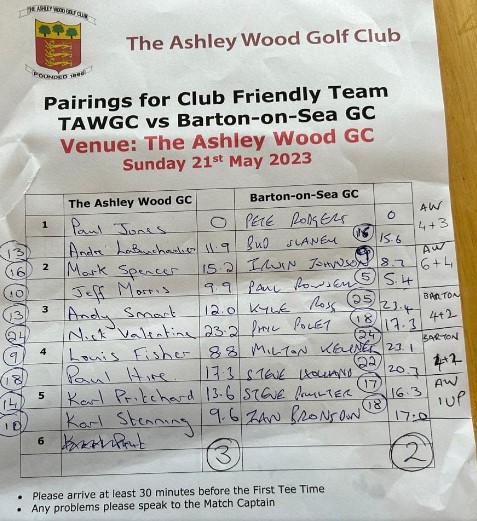 THE ASHLEY WOOD GOLF CLUB
FOUNDED 1896
The Ashley Wood Golf Club
Pairings for Club Friendly Team
TAWGC vs Barton-on-Sea GC
Venue: The Ashley Wood GC
Sunday 21st May 2023
The Ashley Wood GC Barton-on-Sea GC
1 Paul Jones 0 PETE RODGERS 0 AW 4+3
13 Andre 11.9 BUD 15.6
16 2 Mark Spencer 15.2 IRWIN JOHNSON 8.7 AW 6+4
10 Jeff Morris 9.9 PAUL 5 5.4
13 3 Andy Smart 12.0 KYLE ROSS 25 23.4 BARTON 4+2
24 Nick Valentine 23.2 PHIL 18 17.3
9 4 Louis Fisher 8.8 MILTON 24 23.1 BARTON 4+2
18 Paul Hine 17.3 STEVE 22 20.7
14 5 Karl Pritchard 13.6 STEVE 17 16.3 AW 1UP
10 Karl Stenning 9.6 IAN 18 17.0
6 3 2
• Please arrive at least 30 minutes before the First Tee Time
• Any problems please speak to the Match Captain